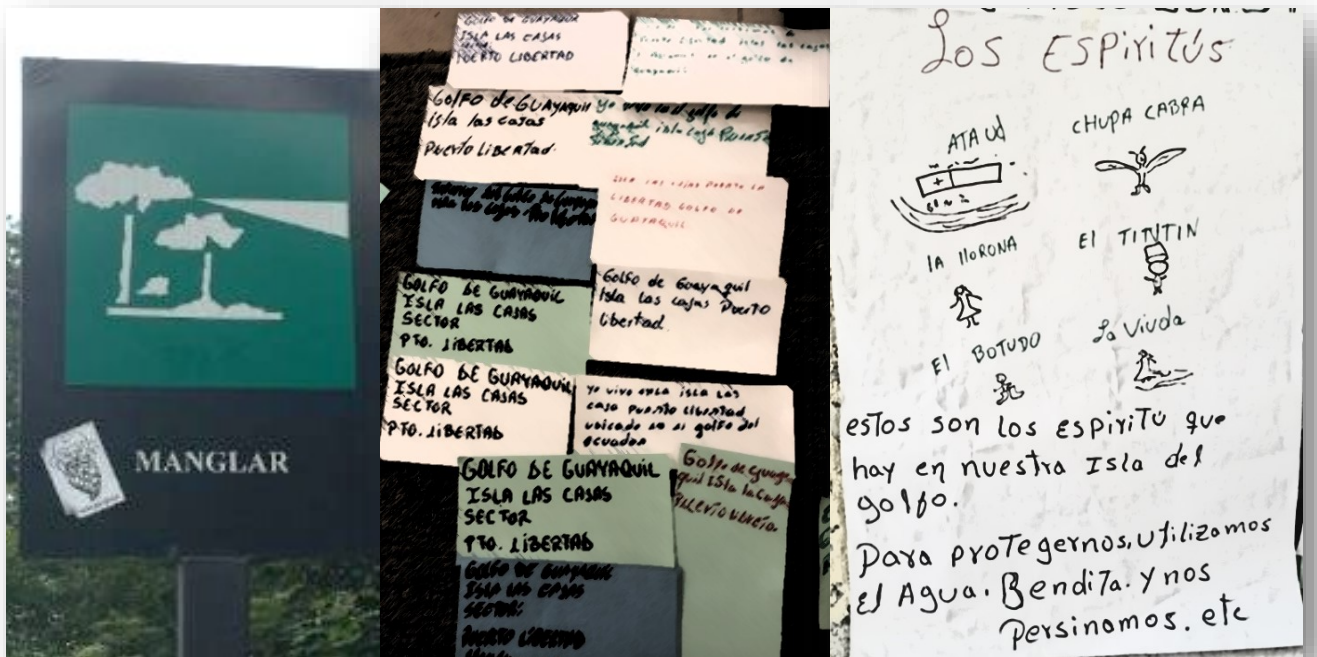 MANGLAR
GOLFO DE GUAYAQUIL
ISLA LAS CASAS
PUERTO LIBERTAD
GOLFO de GUAYAQUIL
isla las casas
PUERTO LIBERTAD.
ISLA LAS CASAS PUERTO LA
LIBERTAD GOLFO DE
GUAYAQUIL
GOLFO DE GUAYAQUIL
ISLA LAS CASAS
SECTOR
PTO. LIBERTAD
Golfo de Guayaquil
Isla las casas Puerto
libertad.
GOLFO DE GUAYAQUIL
ISLA LAS CASAS
SECTOR
PTO. LIBERTAD
Yo vivo en la isla las
casa puerto libertad
ubicado en el golfo del
ecuador
GOLFO DE GUAYAQUIL
ISLA LAS CASAS
SECTOR
PTO. LIBERTAD
Golfo de Guaya
quil ISla la casas
GOLFO DE GUAYAQUIL
ISLA LAS CASAS
SECTOR:
PUERTO LIBERTAD
Los ESPIRITÚS
ATAUd
CHUPA CABRA
lA llORONA
El TINTIN
El BOTUDO
La Viuda
esTos son los espiritu que
hay en nuestra Isla del
golfo.
Para proTegernos, utilizamos
el Agua. BendiTa. y nos
Persinamos. etc